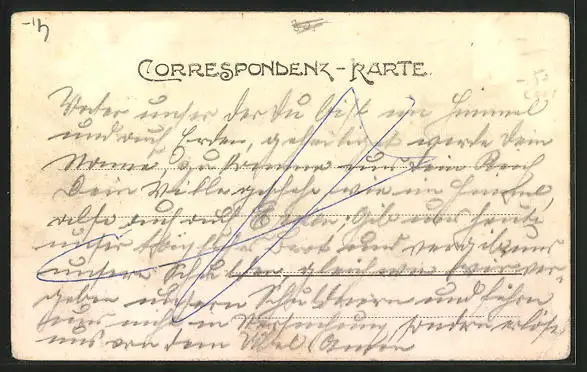 CORRESPONDENZ-KARTE.
Vater unser der Du bist im Himmel
und auf Erden, geheiliget werde Dein
Name, zu komme uns Dein Reich
Dein Wille geschehe wie im Himmel,
also auch auf Erden, Gib uns heute
unser tägliches Brot und vergib uns
unsere Schulden, gleich wie wir ver-
geben unsern Schuldnern und führe
uns nicht in Versuchung, sondern erlöse
uns von dem Übel Amen